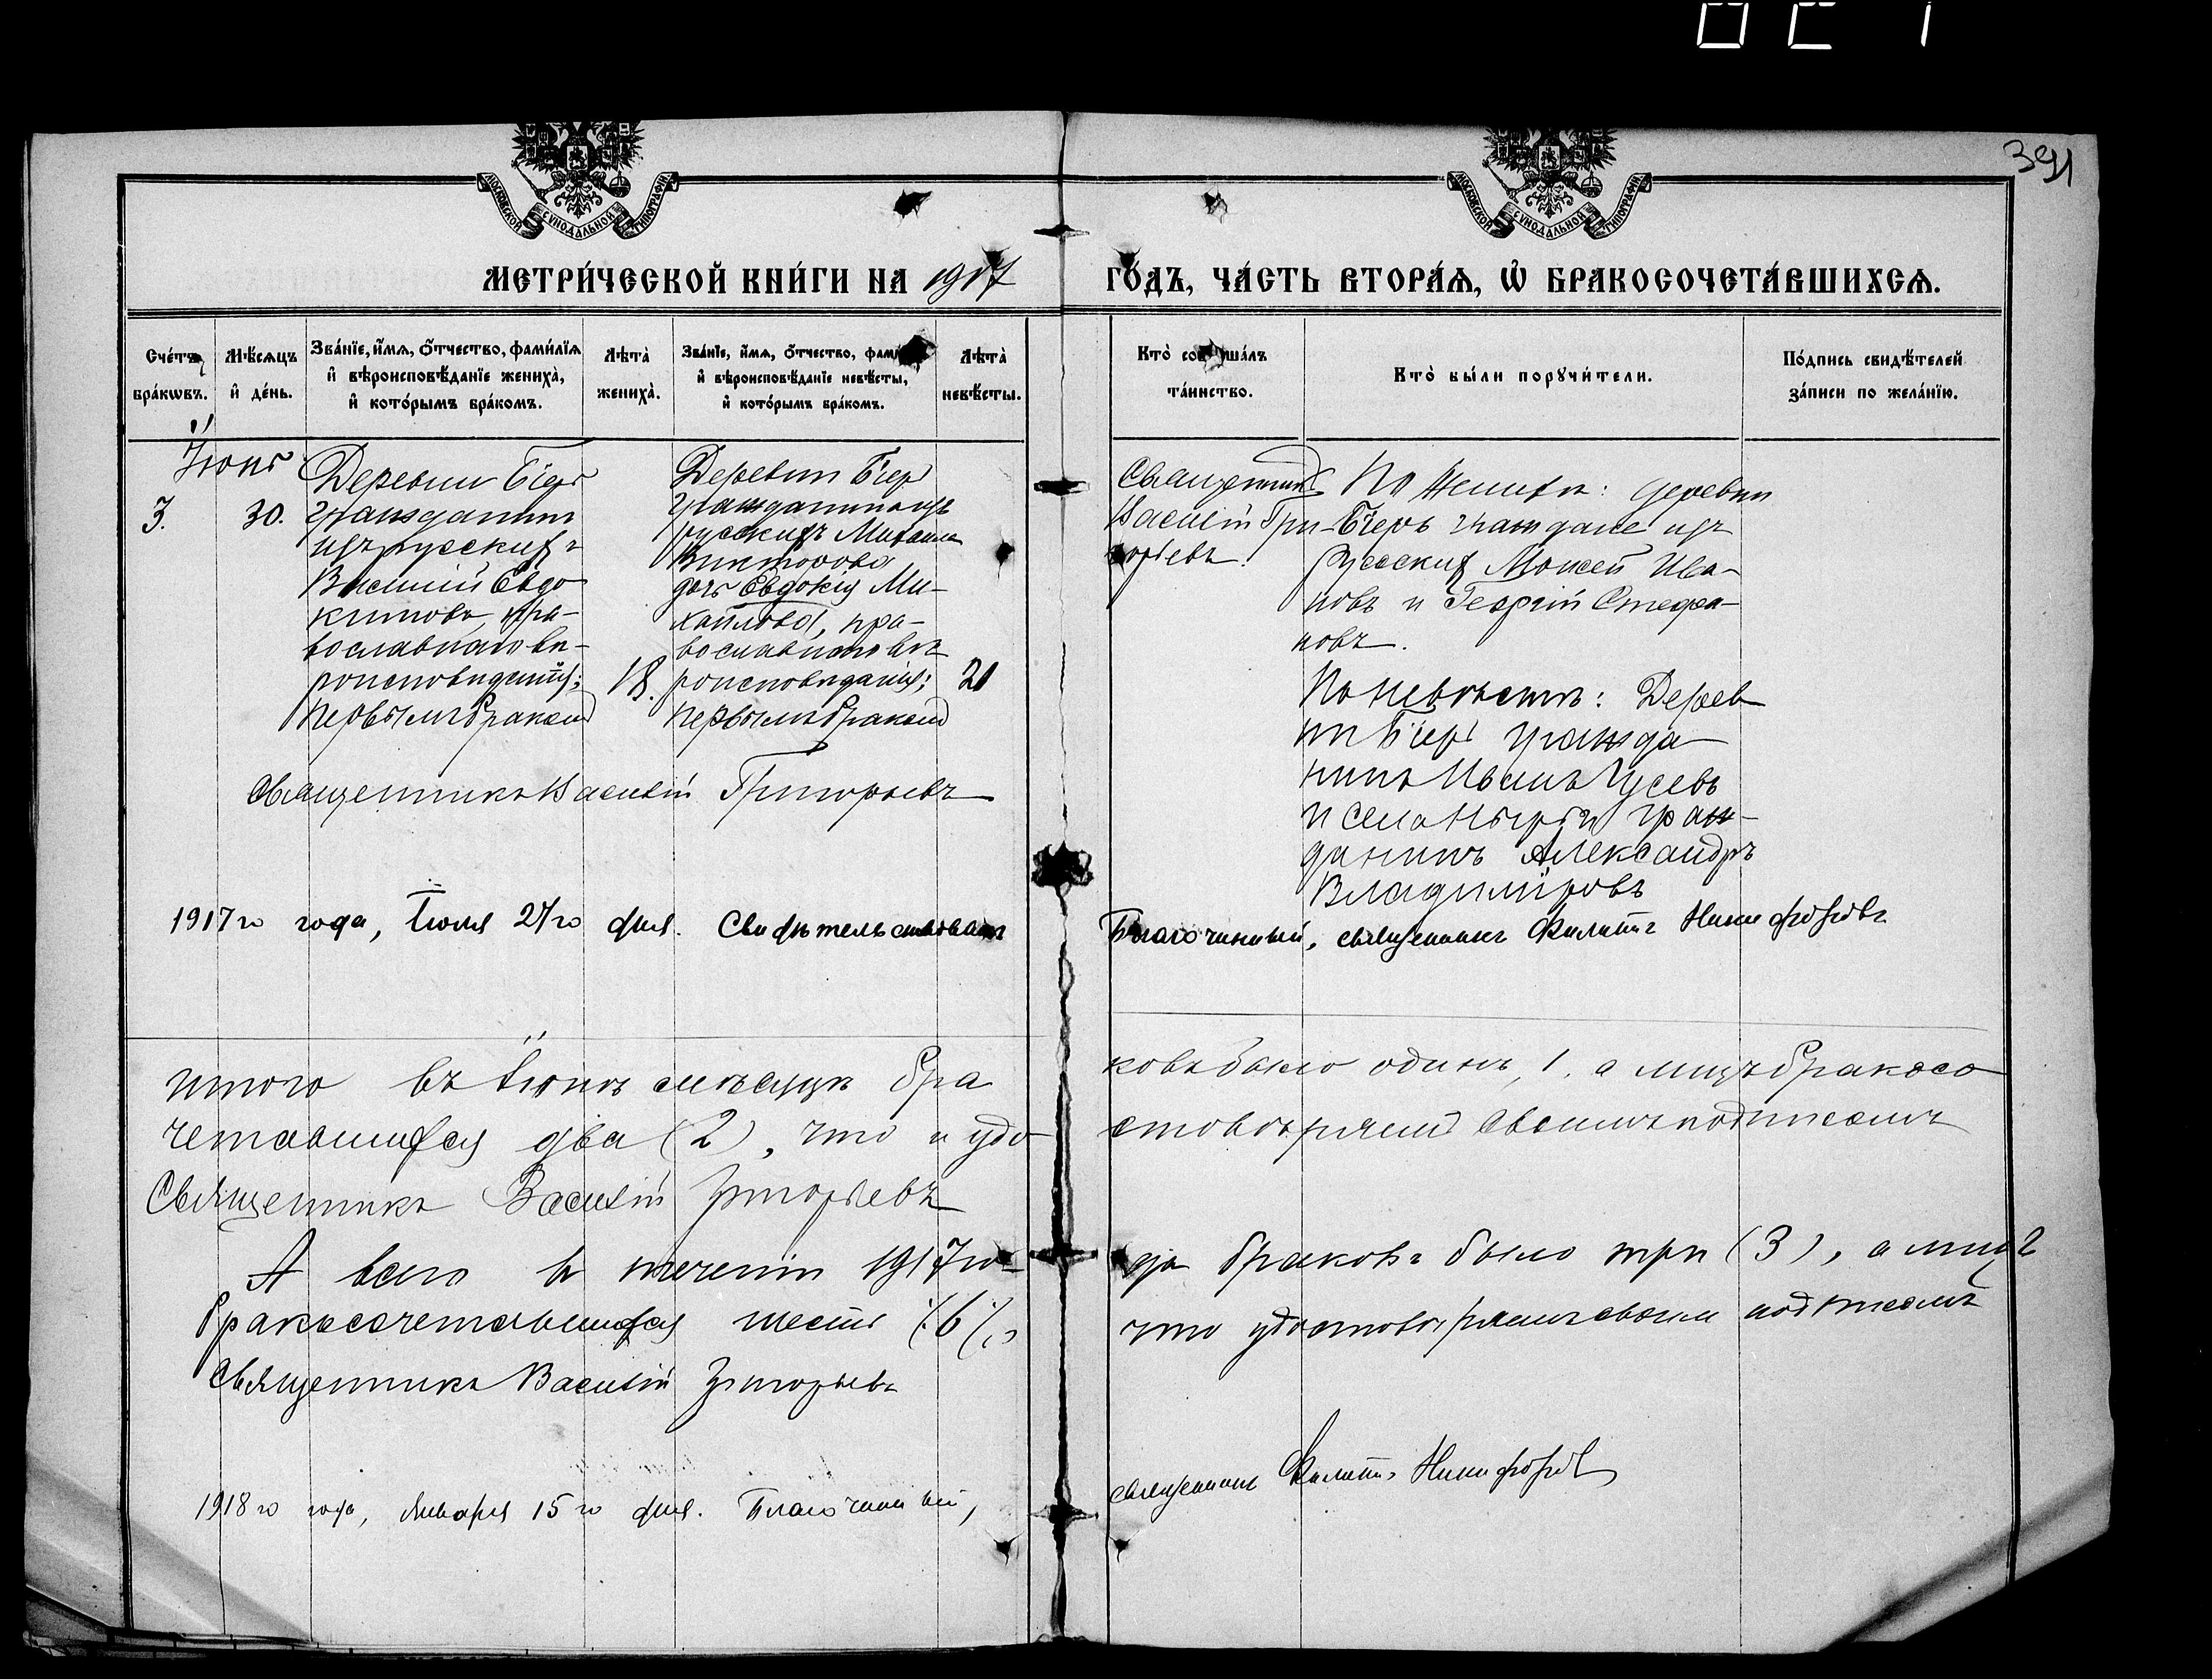 391
МОСКОВСКОЙ СѴНОДАЛЬНОЙ ТИПОГРАФІИ
МОСКОВСКОЙ СѴНОДАЛЬНОЙ ТИПОГРАФІИ
МЕТРИ́ЧЕСКОЙ КНИ́ГИ НА 1917
ГО́ДЪ, ЧА́СТЬ ВТОРА́Ѧ, Ѽ БРАКОСОЧЕТА́ВШИХСѦ.
Сче́тъ бра́кѡвъ.
Мѣ́сѧцъ и҆ де́нь.
Зва́нїе, и҆́мѧ, ѻ҆́тчество, фами́лїѧ
и҆ вѣроисповѣ́данїе жениха̀,
и҆ кото́рымъ бра́комъ.
Лѣта̀ жениха̀.
Зва́нїе, и҆́мѧ, ѻ҆́тчество,
и҆ вѣроисповѣ́данїе невѣ́сты,
и҆ кото́рымъ бра́комъ.
Лѣта̀ невѣ́сты.
Кто̀
та́инство.
Кто̀ бы́ли порꙋчи́тели.
По́дпись свидѣ́телей
за́писи по жела́нїю.
Іюнь
3.
30.
Деревни Біер
гражданинъ
изъ русскихъ
Василій Евдо
кимовъ, пра-
вославнаго вѣ-
роисповѣданія;
первымъ бракомъ
18.
Деревни Біер
гражданина изъ
русскихъ Михаила
Викторова
дочь Евдокія Ми-
хайлова, пра-
вославнаго вѣ
роисповѣданія;
первымъ бракомъ
21
Священникъ
Василій Гри-
горьевъ.
По женихѣ: деревни
Біеръ граждане изъ
русскихъ Моисей Ива-
новъ и Георгій Стефа-
новъ.
По невѣстѣ: Дерев
ни Біеръ гражда
нинъ Иванъ Гусевъ
и села граж-
данинъ Александръ
Владиміровъ
Священникъ Василій Григорьевъ
1917го года, Іюля 27го дня. Свидѣтельствовалъ
Благочинный, священникъ Филиппъ Никифоровъ
итого въ іюнѣ мѣсяцѣ бра
ковъ было одинъ, 1, а лицъ бракосо
четавшихся два (2), что и удо
стовѣряемъ своимъ подписомъ
Священникъ Василій Григорьевъ
А всего въ теченіи 1917 го-
да браковъ было три (3), а лицъ
бракосочетавшихся шесть (6),
что удостовѣряемъ своимъ подписомъ
Священникъ Василій Григорьевъ
1918го года, Января 15го дня. Благочинный,
священникъ Филиппъ Никифоровъ